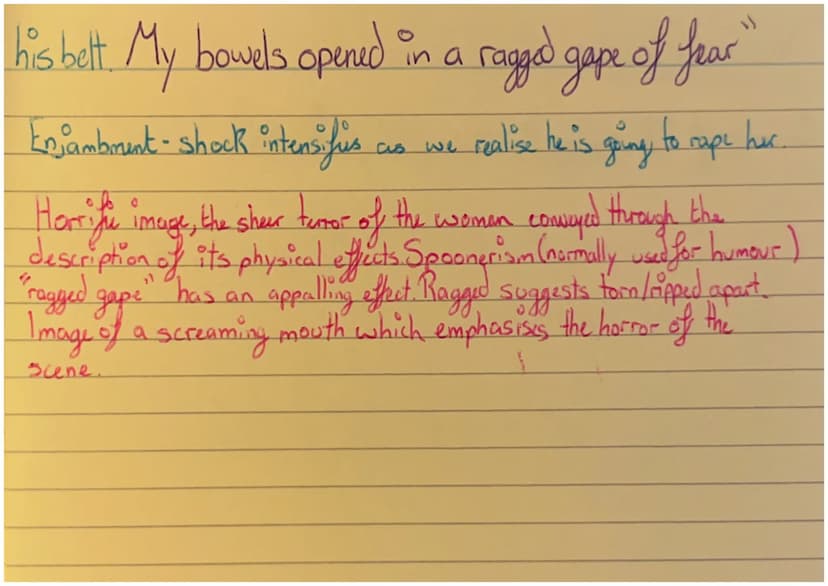 his belt. My bowels opened in a ragged gape of fear"
Enjambment - shock intensifies as we realise he is going to rape her.
Horrific image, the sheer terror of the woman conveyed through the
description of its physical effects. Spoonerism (normally used for humour)
"ragged gape" has an appalling effect. Ragged suggests torn/ripped apart.
Image of a screaming mouth which emphasises the horror of the
scene.